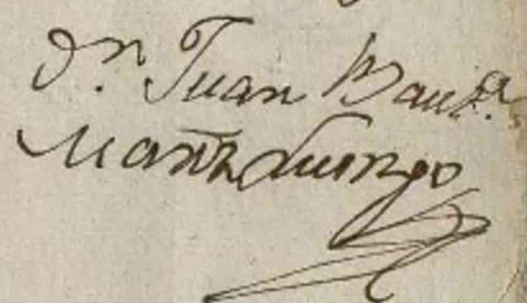 Dn. Juan Bauta.
Martz Luengo